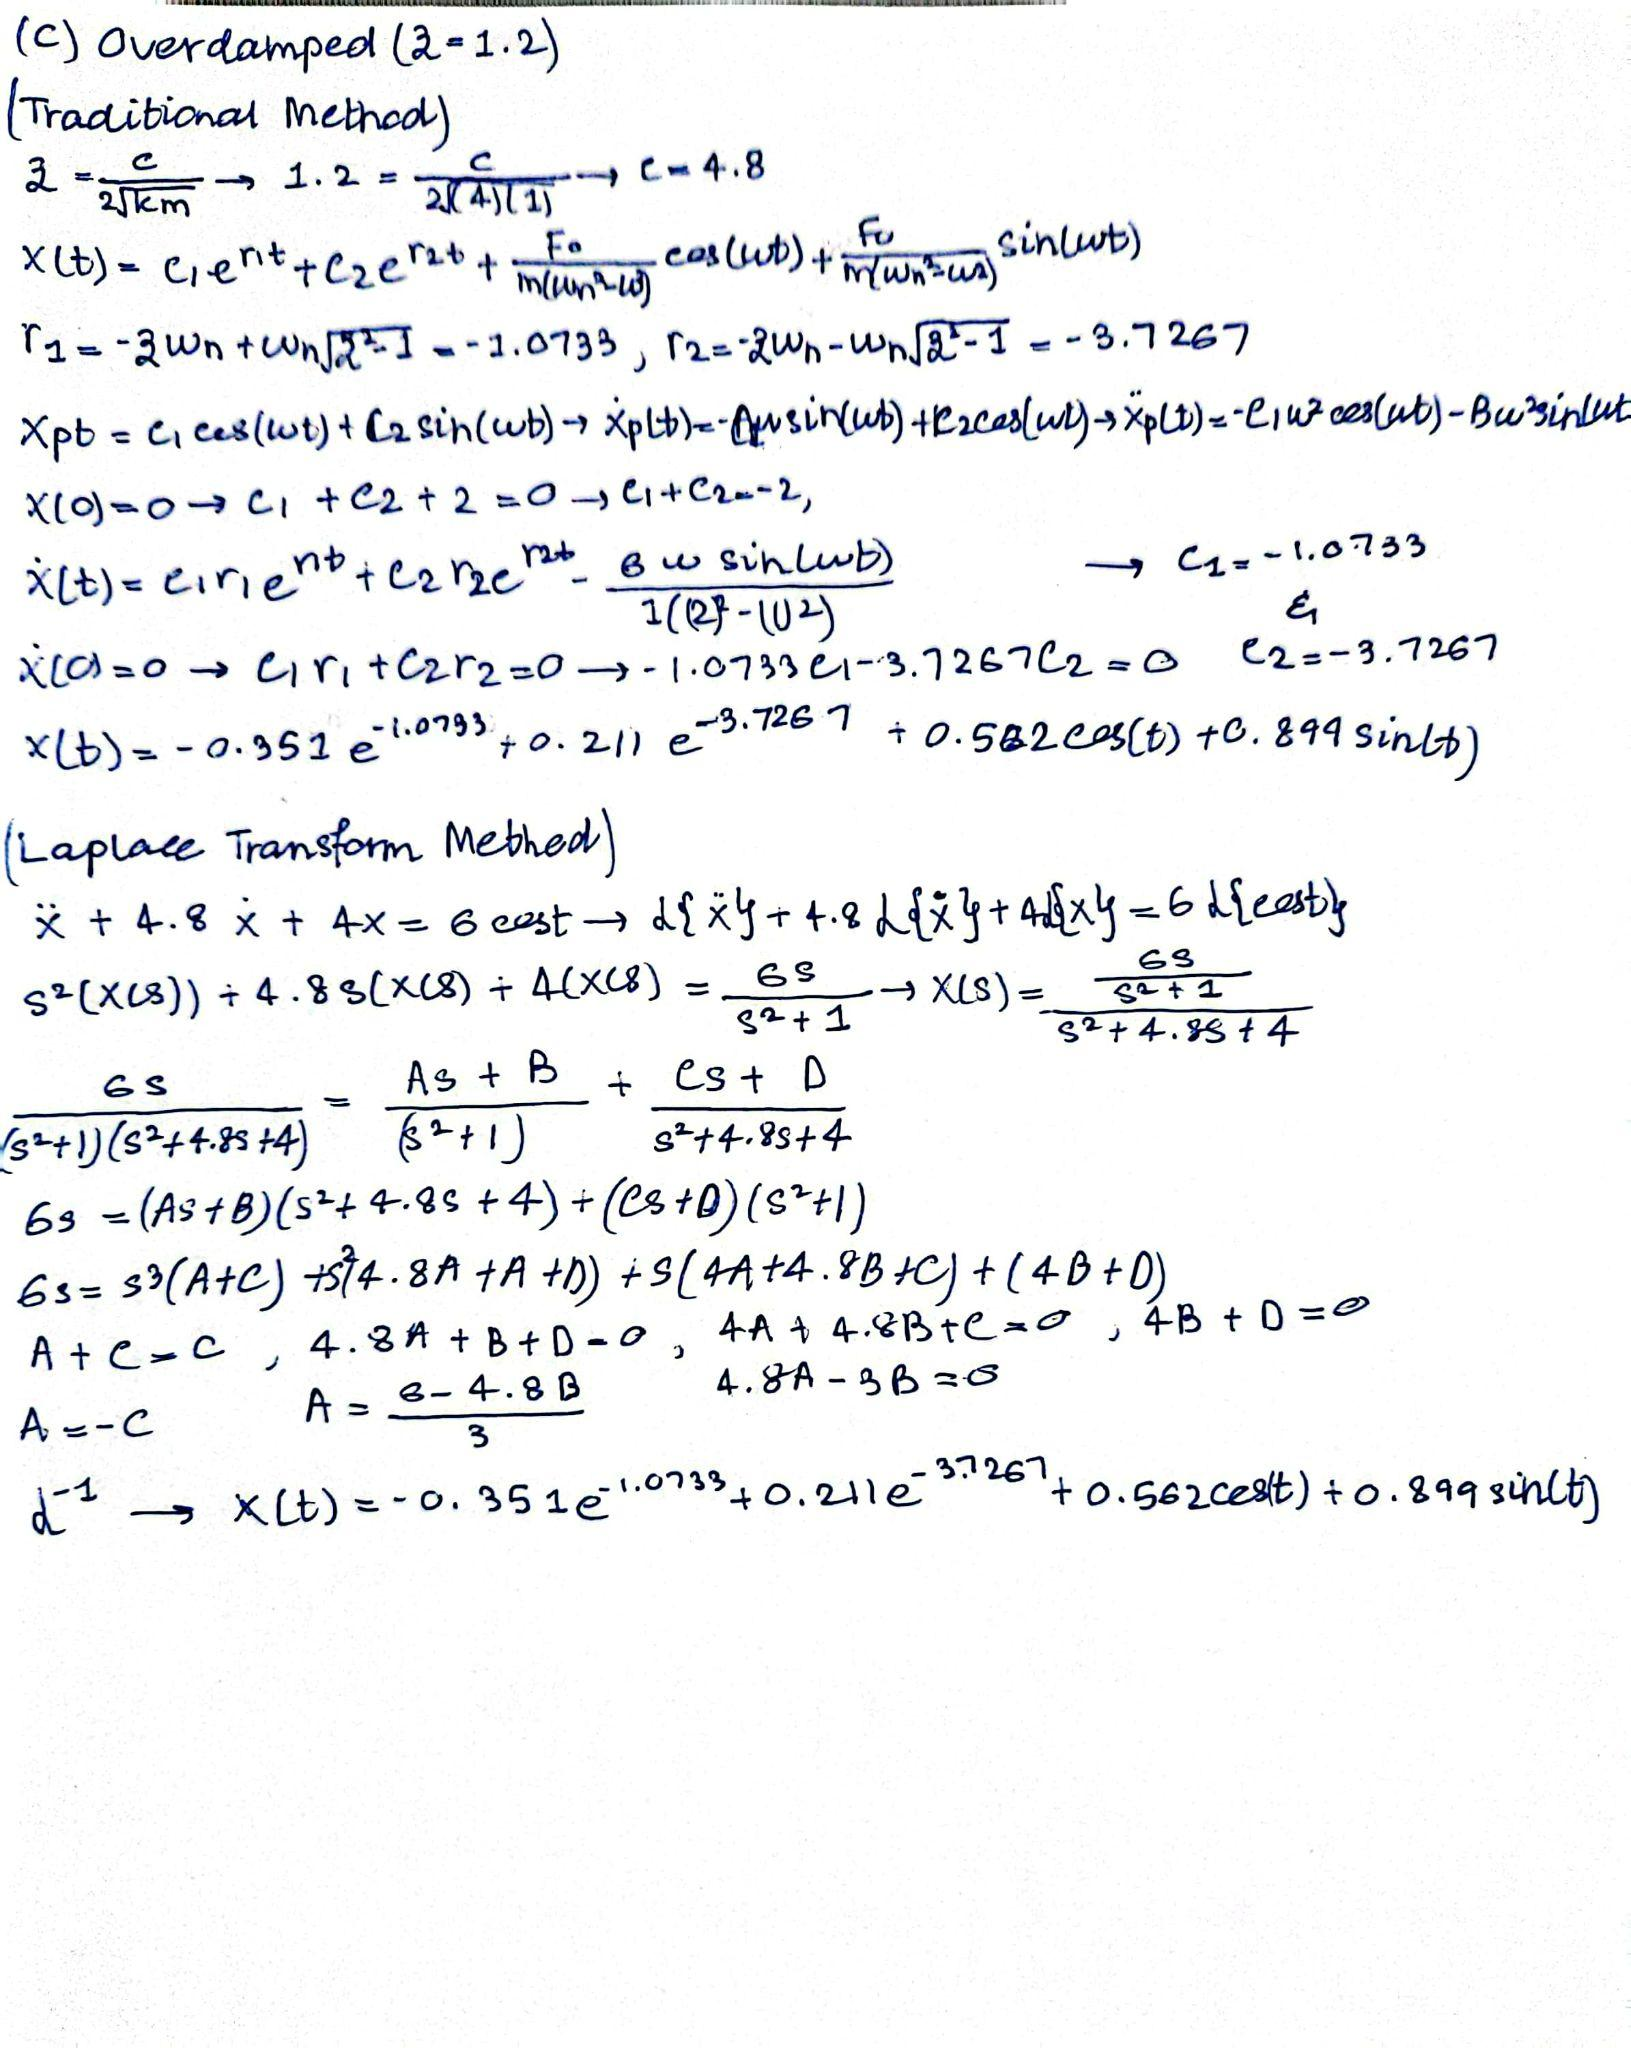 (C) Overdamped (ζ = 1.2)
(Traditional Method)
ζ = c/(2√km) → 1.2 = c/(2√(4)(1)) → c = 4.8
x(t) = c₁e^(r₁t) + c₂e^(r₂t) + F₀/(m(ωn²-ω²)) cos(ωt) + F₀/(m(ωn²-ω²)) sin(ωt)
r₁ = -ζωn + ωn√(ζ²-1) = -1.0733 , r₂ = -ζωn - ωn√(ζ²-1) = -3.7267
xpt = c₁ cos(ωt) + c₂ sin(ωt) → ẋp(t) = -Aω sin(ωt) + c₂cos(ωt) → ẍp(t) = -c₁ω² cos(ωt) - Bω² sin(ωt
x(0) = 0 → c₁ + c₂ + 2 = 0 → c₁ + c₂ = -2,
ẋ(t) = c₁r₁e^(r₁t) + c₂r₂e^(r₂t) - 6 ω sin(ωt)/(1((2)² - ω²)) → c₁ = -1.0733
&
ẋ(0) = 0 → c₁r₁ + c₂r₂ = 0 → -1.0733c₁ - 3.7267c₂ = 0 c₂ = -3.7267
x(t) = -0.351 e^(-1.0733) + 0.211 e^(-3.7267) + 0.562 cos(t) + 0.899 sin(t)
(Laplace Transform Method)
ẍ + 4.8 ẋ + 4x = 6 cost → L{ẍ} + 4.8 L{ẋ} + 4L{x} = 6 L{cost}
s²(X(s)) + 4.8s(X(s) + 4(X(s) = 6s/(s²+1) → X(s) = (6s/(s²+1))/(s²+4.8s+4)
6s/((s²+1)(s²+4.8s+4)) = (As + B)/(s²+1) + (Cs + D)/(s²+4.8s+4)
6s = (As+B)(s²+4.8s+4) + (Cs+D)(s²+1)
6s = s³(A+C) + s²(4.8A + A + D) + s(4A+4.8B+C) + (4B+D)
A + C = C , 4.8A + B + D = 0 , 4A + 4.8B + C = 0 , 4B + D = 0
A = -C A = (6 - 4.8B)/3 4.8A - 3B = 0
L⁻¹ → x(t) = -0.351e^(-1.0733) + 0.211e^(-3.7267) + 0.562cos(t) + 0.899 sin(t)